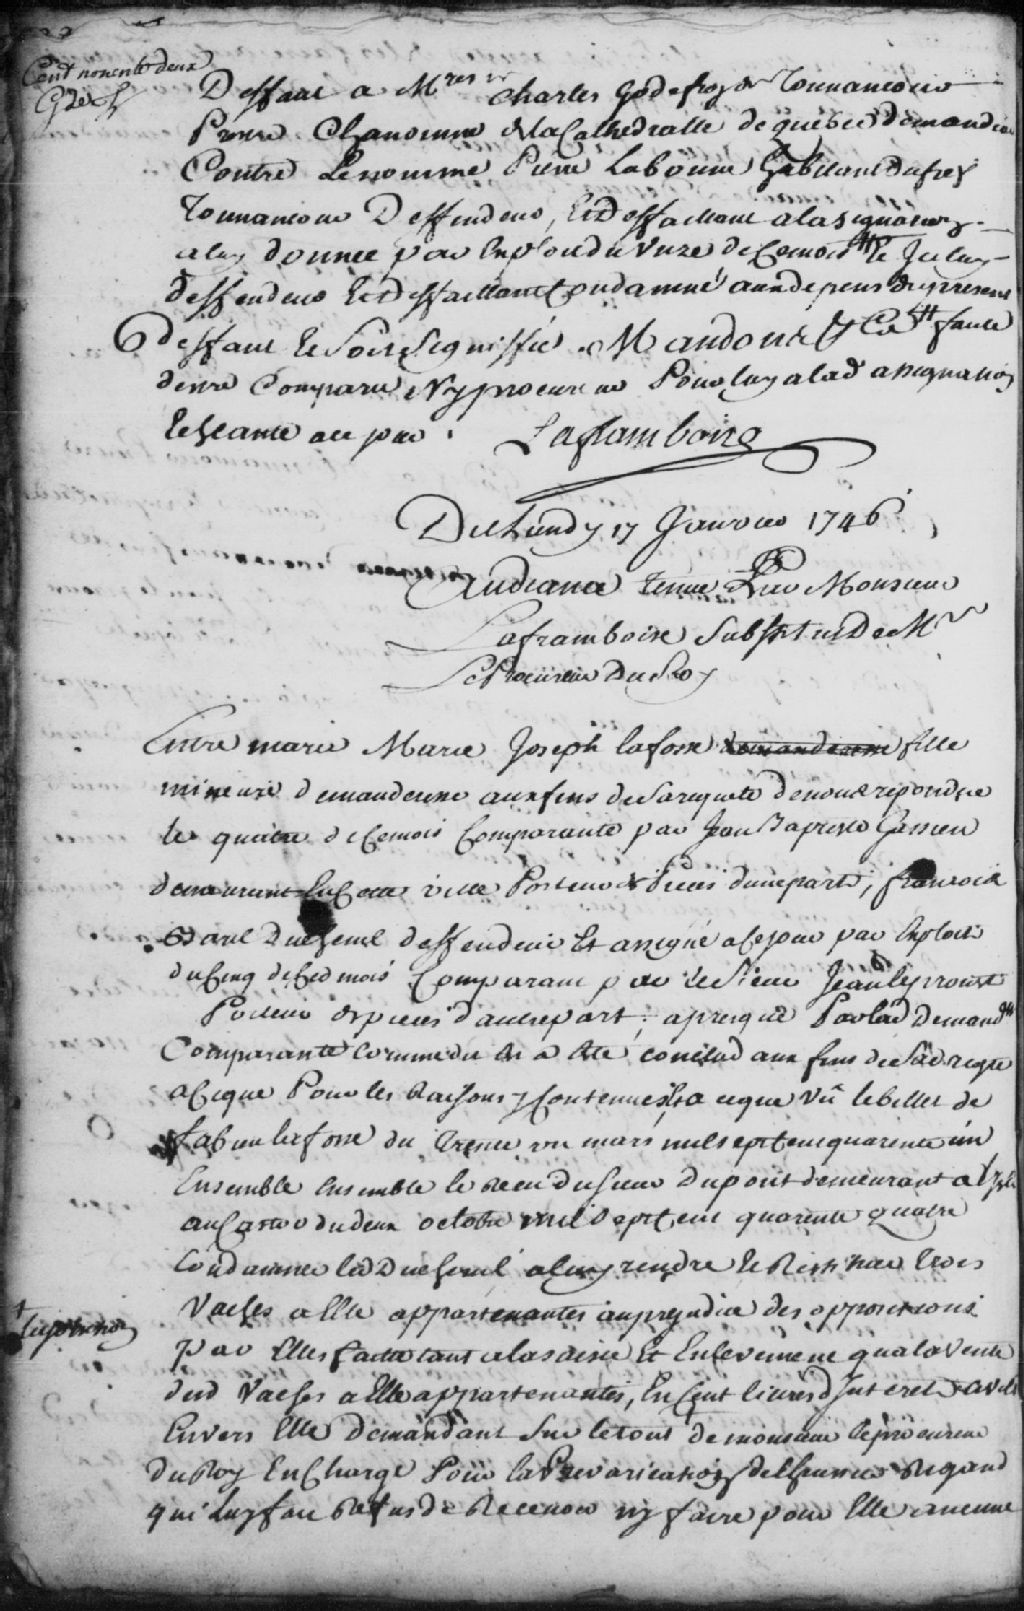 Cent nonente deux
Deffaut a Mres Charles Godefroy de Tonnancour
Pretre Chanoinne de la Cathedralle de quebec demandeur
Contre Le nommé Pierre Labonne habitant du fief
Tonnancour Deffendeur, Et deffaillant a lasignation
a luy donnee par Exploit du unze de Ce mois le Juluy
deffendeur Et deffaillant Condamné aux depens du present
deffaut Le Soit Signiffié. Mandons &ca faute
detre Comparu Ny procureur Pour luy a lad assignation
Echeante a ce jour.
Laframboise
Du Lundy 17 Janvier 1746
Audiance tenue Par Monsieur
Laframboise Substitut De Mr
Le Procureur Du Roy
Entre marie Marie Joseph lafosse demanderesse fille
mineure demanderesse aux fins de Sa requete de nous repondue
le quatre de Ce mois Comparante par Jean Baptiste Gassien
demeurant En Cette ville Porteur de Pieces dune part, francois
Duchenil deffendeur Et assigné a Ce jour par Exploit
du Cinq de Ced mois Comparant par le Sieur Jean Leproust
Porteur de pieces dautre part; apres que Par lad Demandte
Comparante Comme dit Est a Eté conclud aux fins de Sad reqte
a Ce que Pour les Raisons y Contenues, Et a ce que Vû le billet de
lafosse du trente un mars mil sept Cent quarente un
Ensemble Ensemble le Recu du Sieur Dupont demeurant a
du deux octobre mil Sept Cent quarente quatre
Condamner led Duchenil a luy rendre Et Restituer les
Vaches a Elle appartenantes au prejudice des oppositions
par Elles faitte tant a la saisie Et Enlevement qua la Vente
desd Vaches a Elle appartenantes, En Cent livres dinteret Civils
Envers Elle Demandant Sur le tout de monsieur le procureur
du Roy En Charge Pour la Prevarication de Rigaud
qui luy fait Refus de Recevoir ny faire pour Elle aucune